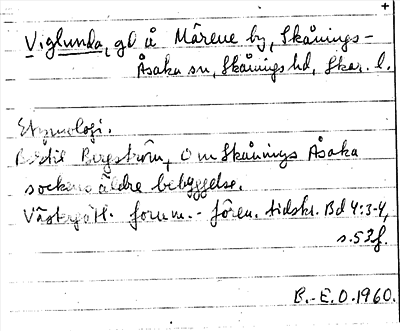 +
Viglunda, gd å Mårene by, Skånings-
Åsaka sn, Skånings hd, Skar. l.
Etymologi.
Bertil Bergström, Om Skånings Åsaka
sockens äldre bebyggelse.
Västergötl. fornm.- fören. tidskr. Bd 4:3-4,
s.53f.
B.-E.O.1960.